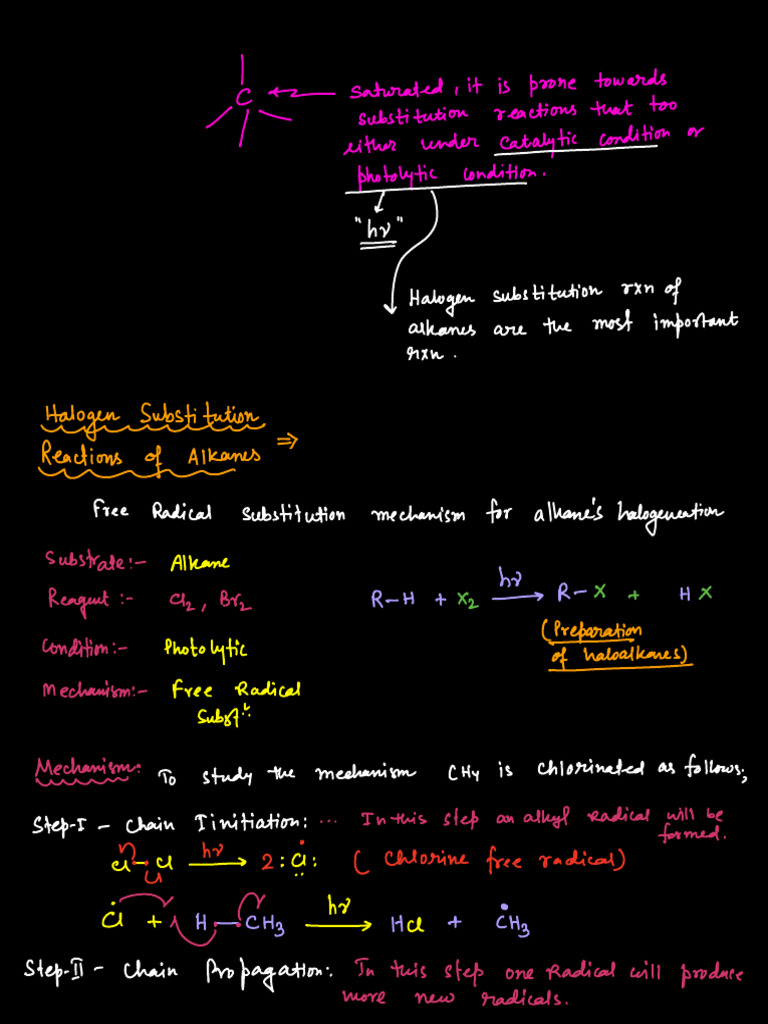 C ← Saturated, it is prone towards
substitution reactions that too
either under catalytic condition or
photolytic condition.
"hν"
Halogen substitution rxn of
alkanes are the most important
rxn.
Halogen Substitution
Reactions of Alkanes ⇒
Free Radical substitution mechanism for alkane's halogenation
Substrate:- Alkane
Reagent:- Cl2, Br2
R-H + X2 hν → R-X + HX
(Preparation
of haloalkanes)
Condition:- Photolytic
Mechanism:- Free Radical
Substn
Mechanism: To study the mechanism CH4 is chlorinated as follows;
Step-I - Chain Iinitiation: ... In this step an alkyl radical will be
formed.
Cl-Cl hν → 2:Cl: (Chlorine free radical)
Cl + H-CH3 hν → HCl + CH3
Step-II - Chain Propagation: In this step one Radical will produce
more new radicals.